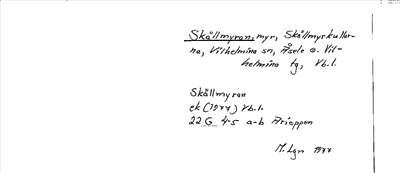 Skållmyran, myr, Skållmyrkullar-
na, Vilhelmina sn, Åsele o. Vil-
helmina tg, Vb.l.
Skållmyran
ek (1977) Vb.l.
22 G 4-5 a-b Arieppen
M. Lgn 1977